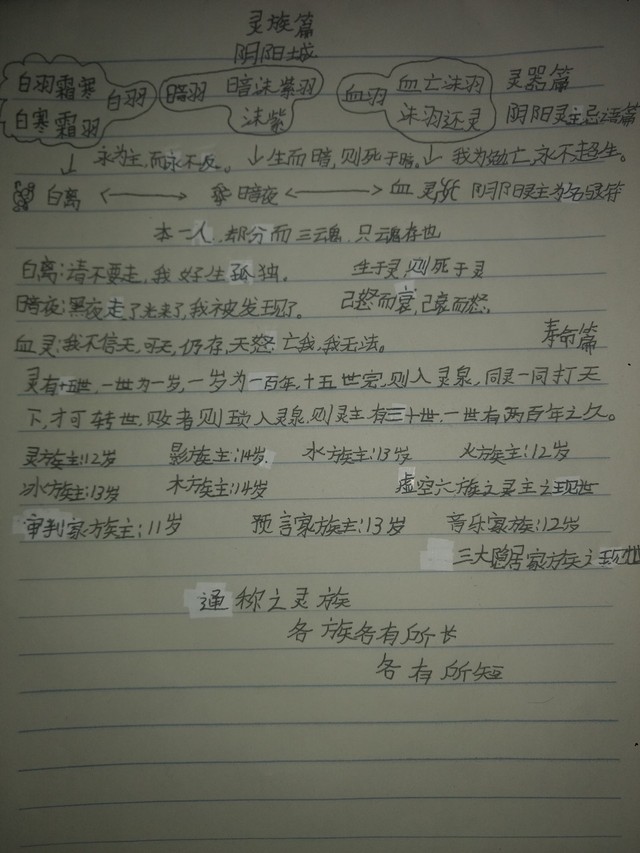 灵族篇
阴阳城
白羽霜寒 白寒霜羽 白羽 暗羽 暗沫紫羽 沫紫 血羽 血亡沫羽 沫羽还灵 灵器篇
阴阳灵主忌语篇
↓ 永为主,而永不反。 ↓生而暗,则死于暗。 ↓ 我为亡,永不超生。
白离 ←→ 暗夜 ←→ 血灵 阴阳灵主为名
本一人,却分而三魂,只魂存也
白离:请不要走,我好生孤独。 生于灵,则死于灵
暗夜:黑夜走了光来了,我被发现了。 己怒而衰,己衰而怒。
血灵:我不信天,可天,仍存,天怒亡我,我无法。 寿命篇
灵有十五世,一世为一岁,一岁为一百年,十五世完,则入灵泉,同灵一同打天
下,才可转世,败者则琐入灵泉,则灵主有三十世,一世有两百年之久。
灵族主:12岁 影族主:14岁 水族主:13岁 火族主:12岁
冰族主:13岁 木族主:14岁 虚空六族之灵主之现世
审判家族主:11岁 预言家族主:13岁 音乐家族:12岁
三大隐居家族之现世
通称之灵族
各族各有所长
各有所短